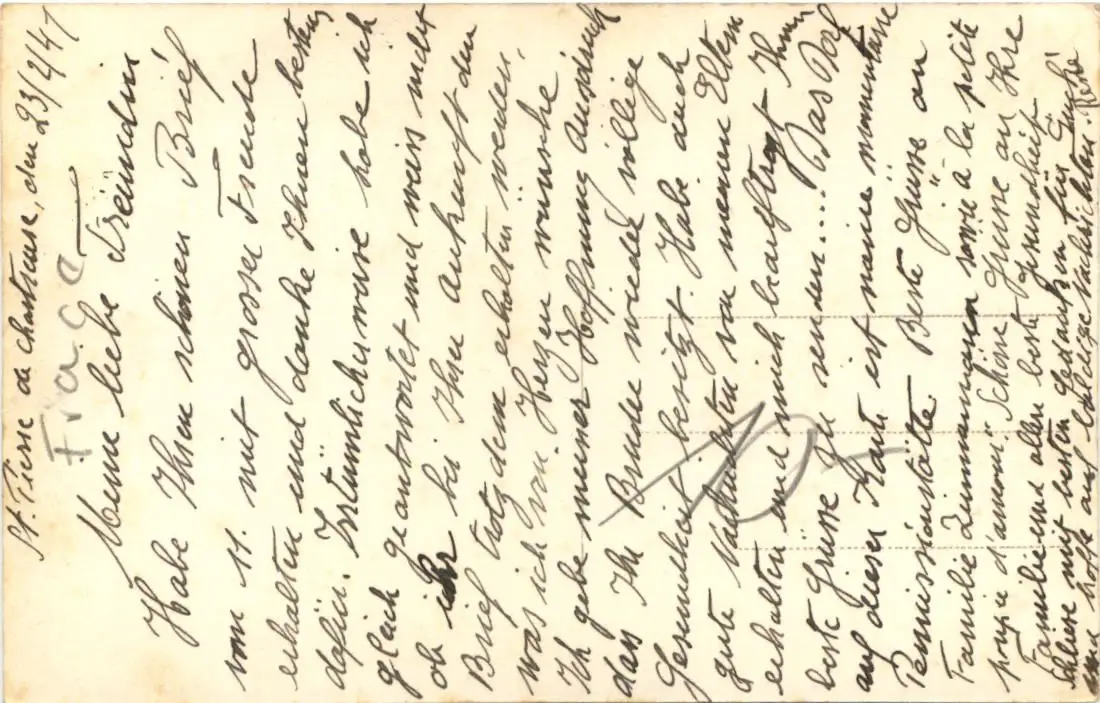 St. Pierre de chartreuse, den 23/2/41
Frace
Meine liebe Freundin
Habe Ihren schönen Brief
vom 11. mit grosser Freude
erhalten und danke Ihnen bestens
dafür. Irrtümlicherweise habe ich
gleich geantwortet und weis nicht
ob ihr bei Ihrer ankunft den
Brief trotzdem erhalten werden,
was ich von Herzen wünsche.
Ich gebe meiner Hoffnung Ausdruck
das Ihr Bruder wieder völlige
Gesundheit besitzt. Habe auch
gute Nachrichten von meinen Eltern
erhalten und mich beauftragt Ihnen
beste Grüsse zu senden.... Das Dorf
auf dieser Karte ist meine momentane
Permissionstätte. Beste Grüsse an
Familie Zimmermann sowie à la petite
d'amour. Schöne Grüsse an Ihre
Familie und allen beste Gesundheit
schliese mit besten Gedanken für Sie
und hoffe auf baldige Nachrichten. René
10-